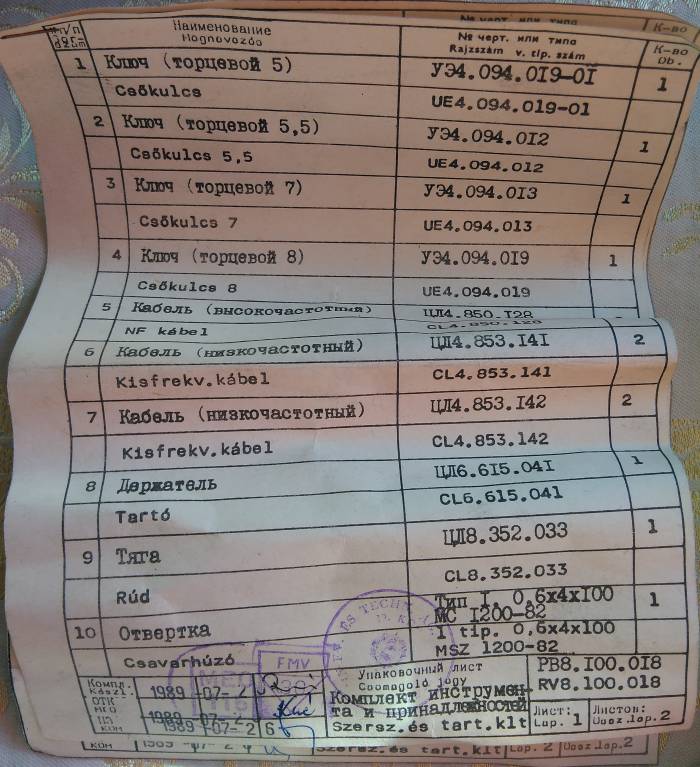 № черт. или типа К-во
п/п Наименование № черт. или типа К-во
Megnevezés Rajzszám v. tip. szám Db.
1 Ключ (торцевой 5) УЭ4.094.0I9-0I 1
Csőkulcs UE4.094.019-01
2 Ключ (торцевой 5,5) УЭ4.094.0I2 1
Csőkulcs 5,5 UE4.094.012
3 Ключ (торцевой 7) УЭ4.094.0I3 1
Csőkulcs 7 UE4.094.013
4 Ключ (торцевой 8) УЭ4.094.0I9 1
Csőkulcs 8 UE4.094.019
5 Кабель (высокочастотный) ЦЛ4.850.I28
NF kábel CL4.850.128
6 Кабель (низкочастотный) ЦЛ4.853.I4I 2
Kisfrekv.kábel CL4.853.141
7 Кабель (низкочастотный) ЦЛ4.853.I42 2
Kisfrekv.kábel CL4.853.142
8 Держатель ЦЛ6.615.04I 1
Tartó CL6.615.041
9 Тяга ЦЛ8.352.033 1
Rúd CL8.352.033
10 Отвертка Тип I. 0,6х4хI00 1
МС I200-82
Csavarhúzó 1 tip. 0,6x4x100
MSZ 1200-82
FMV
Компл. 1989 -07- 2 Упаковочный лист РВ8.I00.0I8
Készl. Csomagoló jegy RV8.100.018
ОТК 1989 -07- 2 Комплект инструмен-
МЕО та и принадлежностей Лист: Листов:
ПП 1989 -07- 2 6 Szersz.és tart.klt Lap. 1 Össz.lap.2
КОМ
КОМ 1989 -07- 2 Szersz.és tart.klt Lap. 2 Össz.lap.2